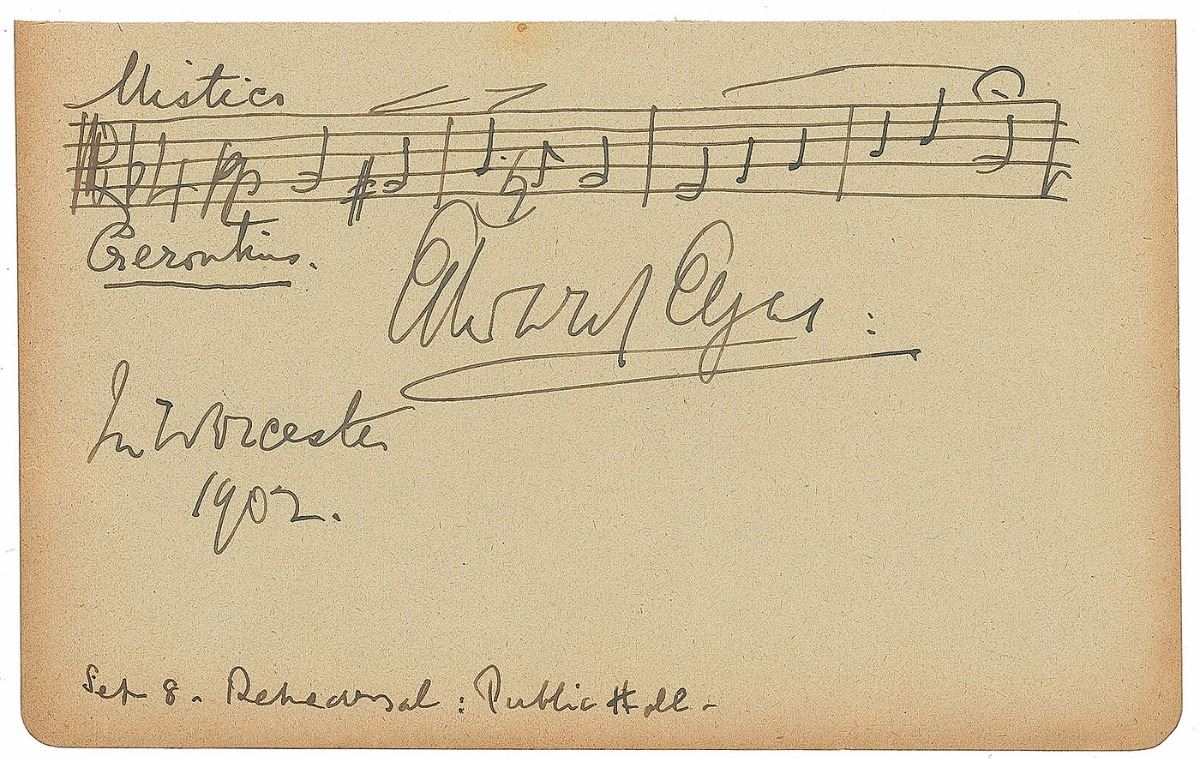 Mistico
pp
Gerontius.
Edward Elgar :
In Worcester
1902.
Sep 8. Rehearsal : Public Hall -